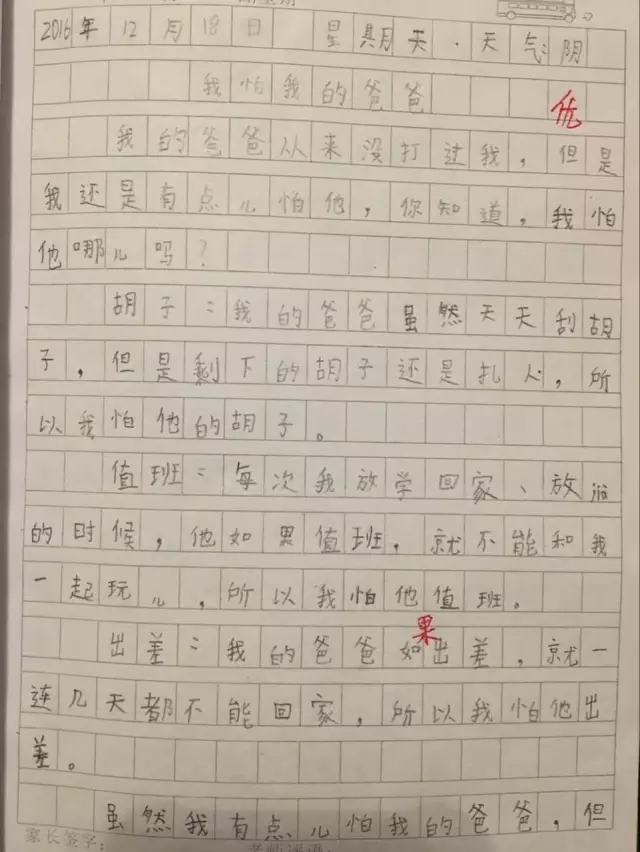 2016年12月18日 星期天·天气:阴
我怕我的爸爸
优
我的爸爸从来没打过我，但是
我还是有点儿怕他，你知道，我怕
他哪儿吗？
胡子：我的爸爸虽然天天刮胡
子，但是剩下的胡子还是扎人，所
以我怕他的胡子。
值班：每次我放学回家、放假
的时候，他如果值班，就不能和我
一起玩儿，所以我怕他值班。
出差：我的爸爸如果出差，就一
连几天都不能回家，所以我怕他出
差。
虽然我有点儿怕我的爸爸，但
家长签字：